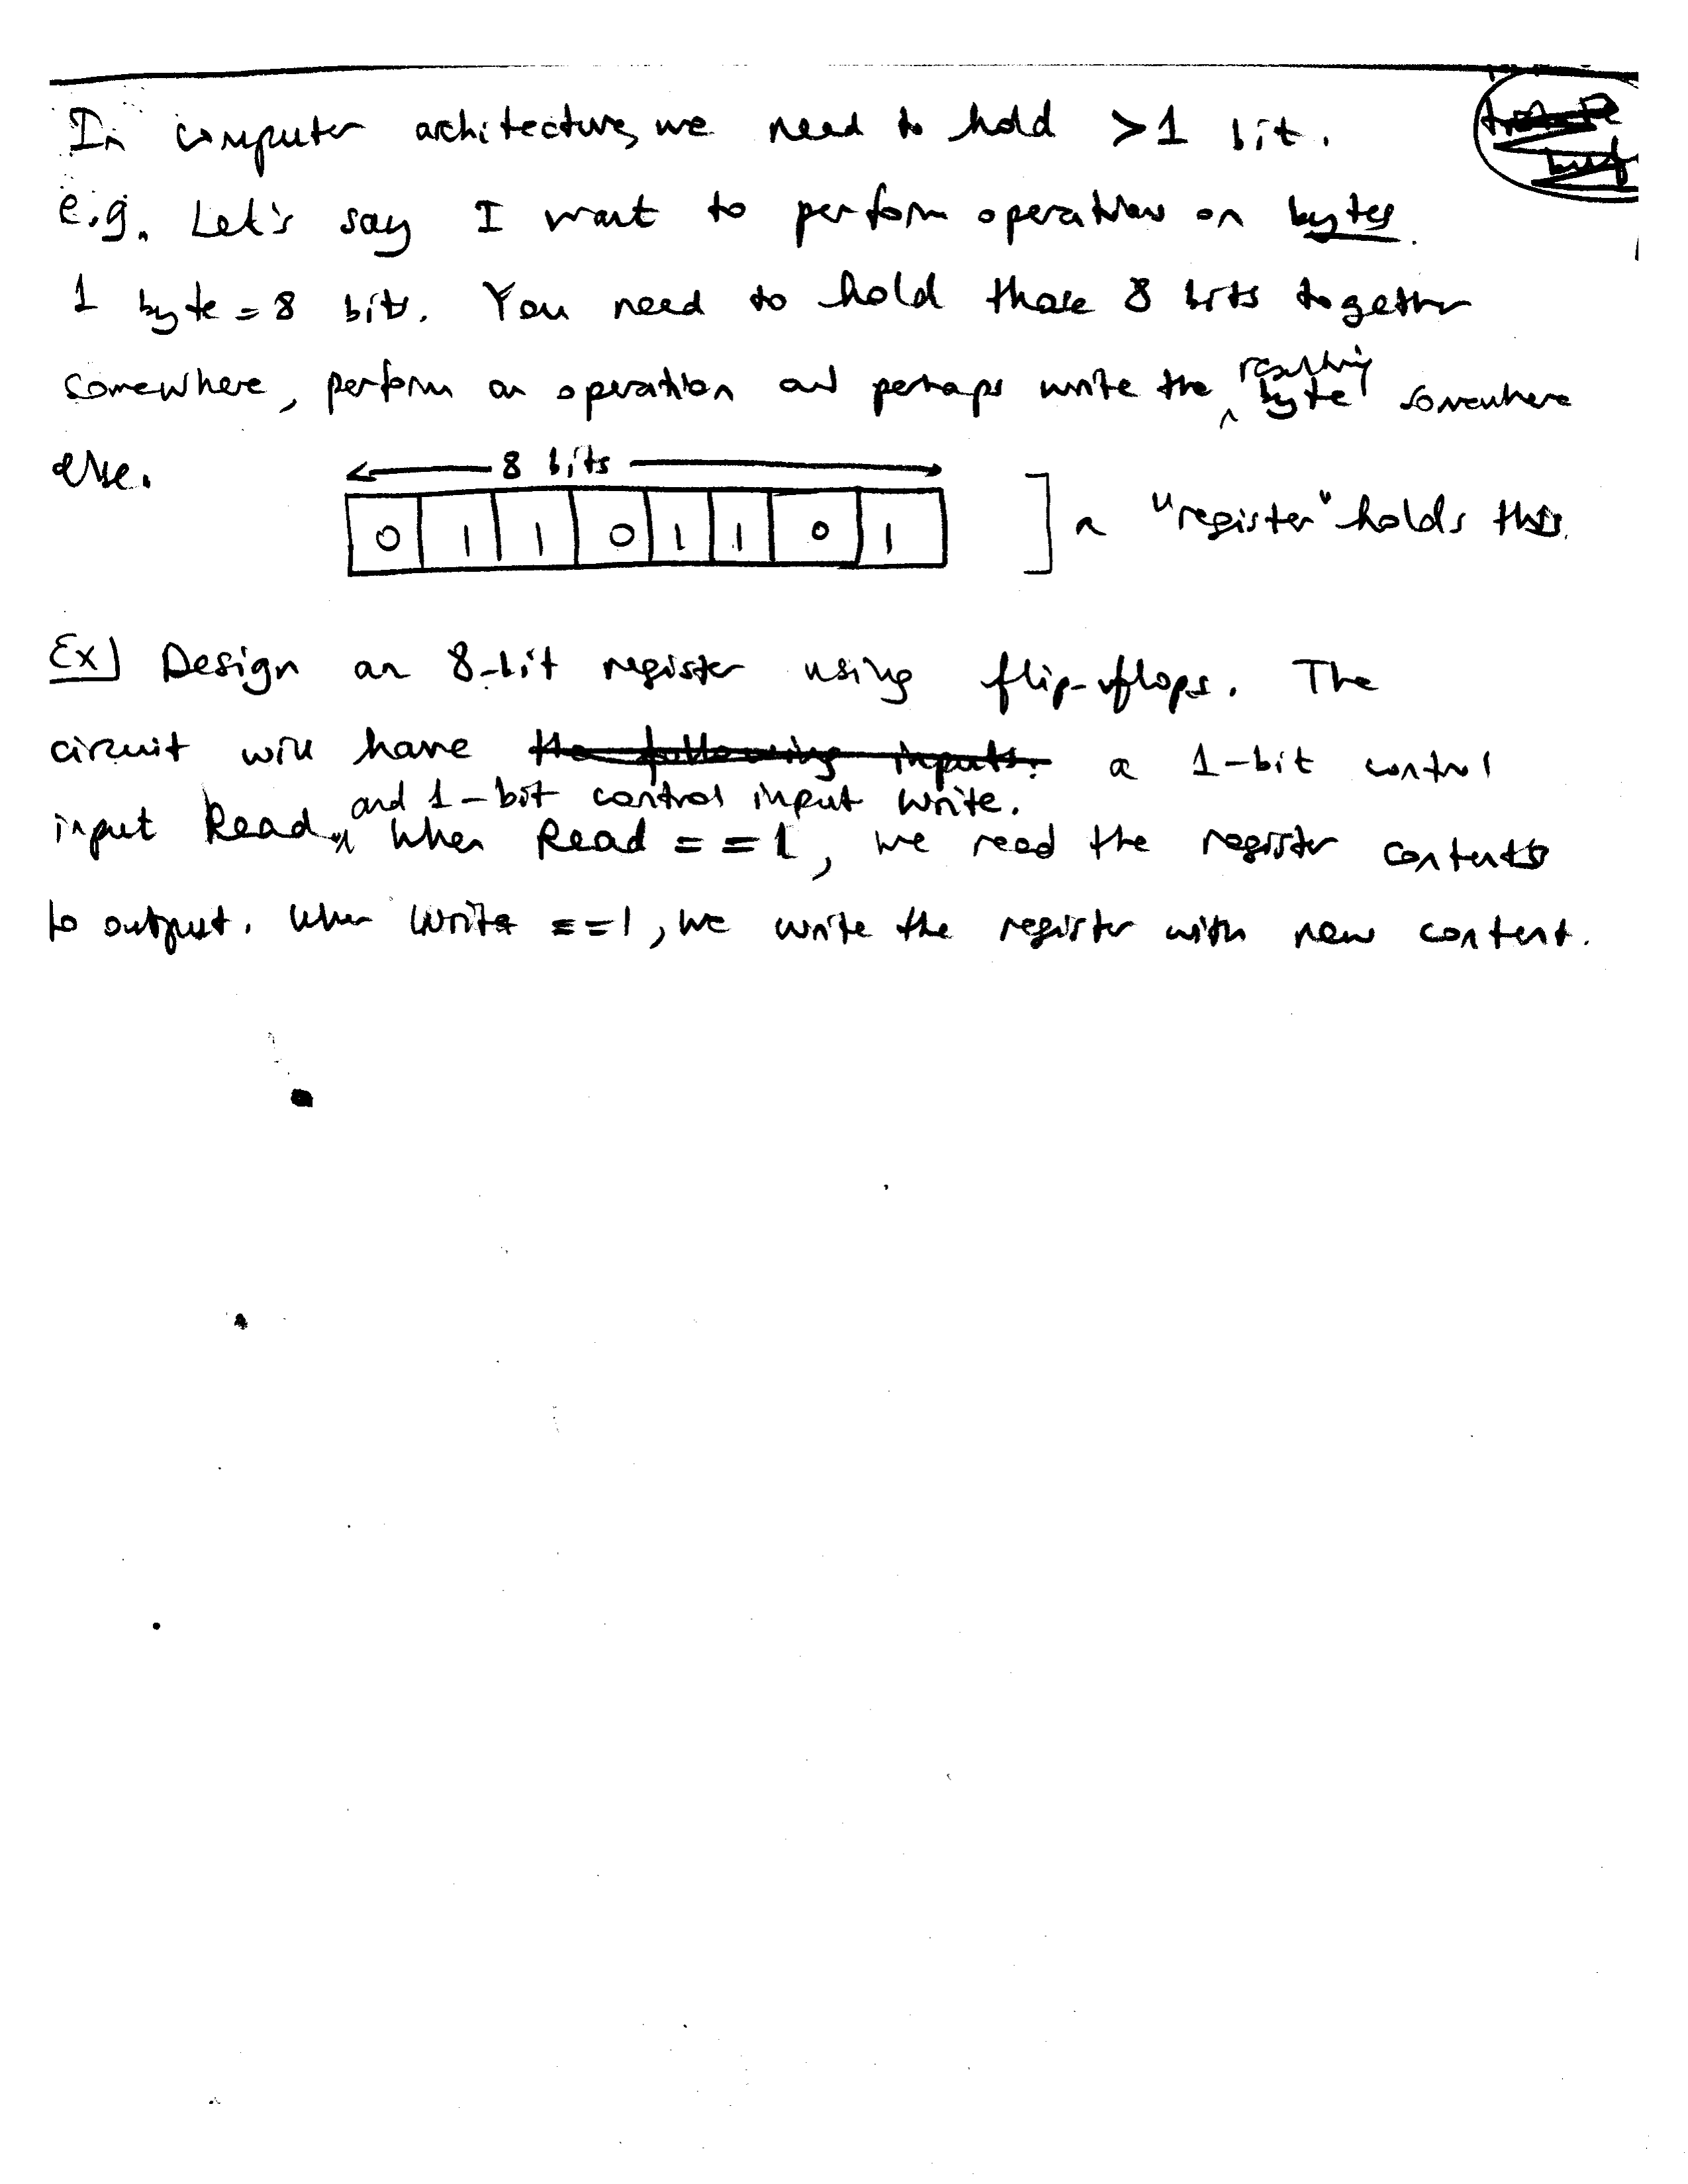 In computer architecture, we need to hold >1 bit.
e.g. Let's say I want to perform operations on bytes.
1 byte = 8 bits. You need to hold those 8 bits together
somewhere, perform an operation and perhaps write the resulting byte somewhere
else.
8 bits
0 1 1 0 1 1 0 1
a "register" holds this.
Ex) Design an 8-bit register using flip-flops. The
circuit will have the following inputs: a 1-bit control
input Read and 1-bit control input Write. When Read ==1, we read the register contents
to output. When Write ==1, we write the register with new content.